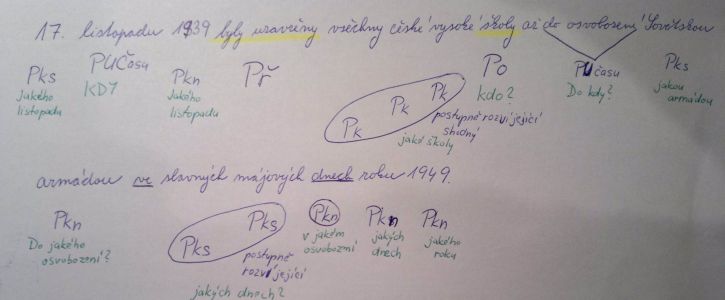 17. listopadu 1939 byly uzavřeny všechny české vysoké školy až do osvobození Sovětskou
Pks PUčasu Pkn Př Po PUčasu Pks
jakého listopadu KDY jakého listopadu kdo? Do kdy? jakou armádou
Pk Pk Pk postupně rozvíjející shodný
jaké školy
armádou ve slavných májových dnech roku 1949.
Pkn Pks Pks Pkn Pkn Pkn
Do jakého osvobození? postupně rozvíjející v jakém osvobození jakých dnech jakého roku
jakých dnech?